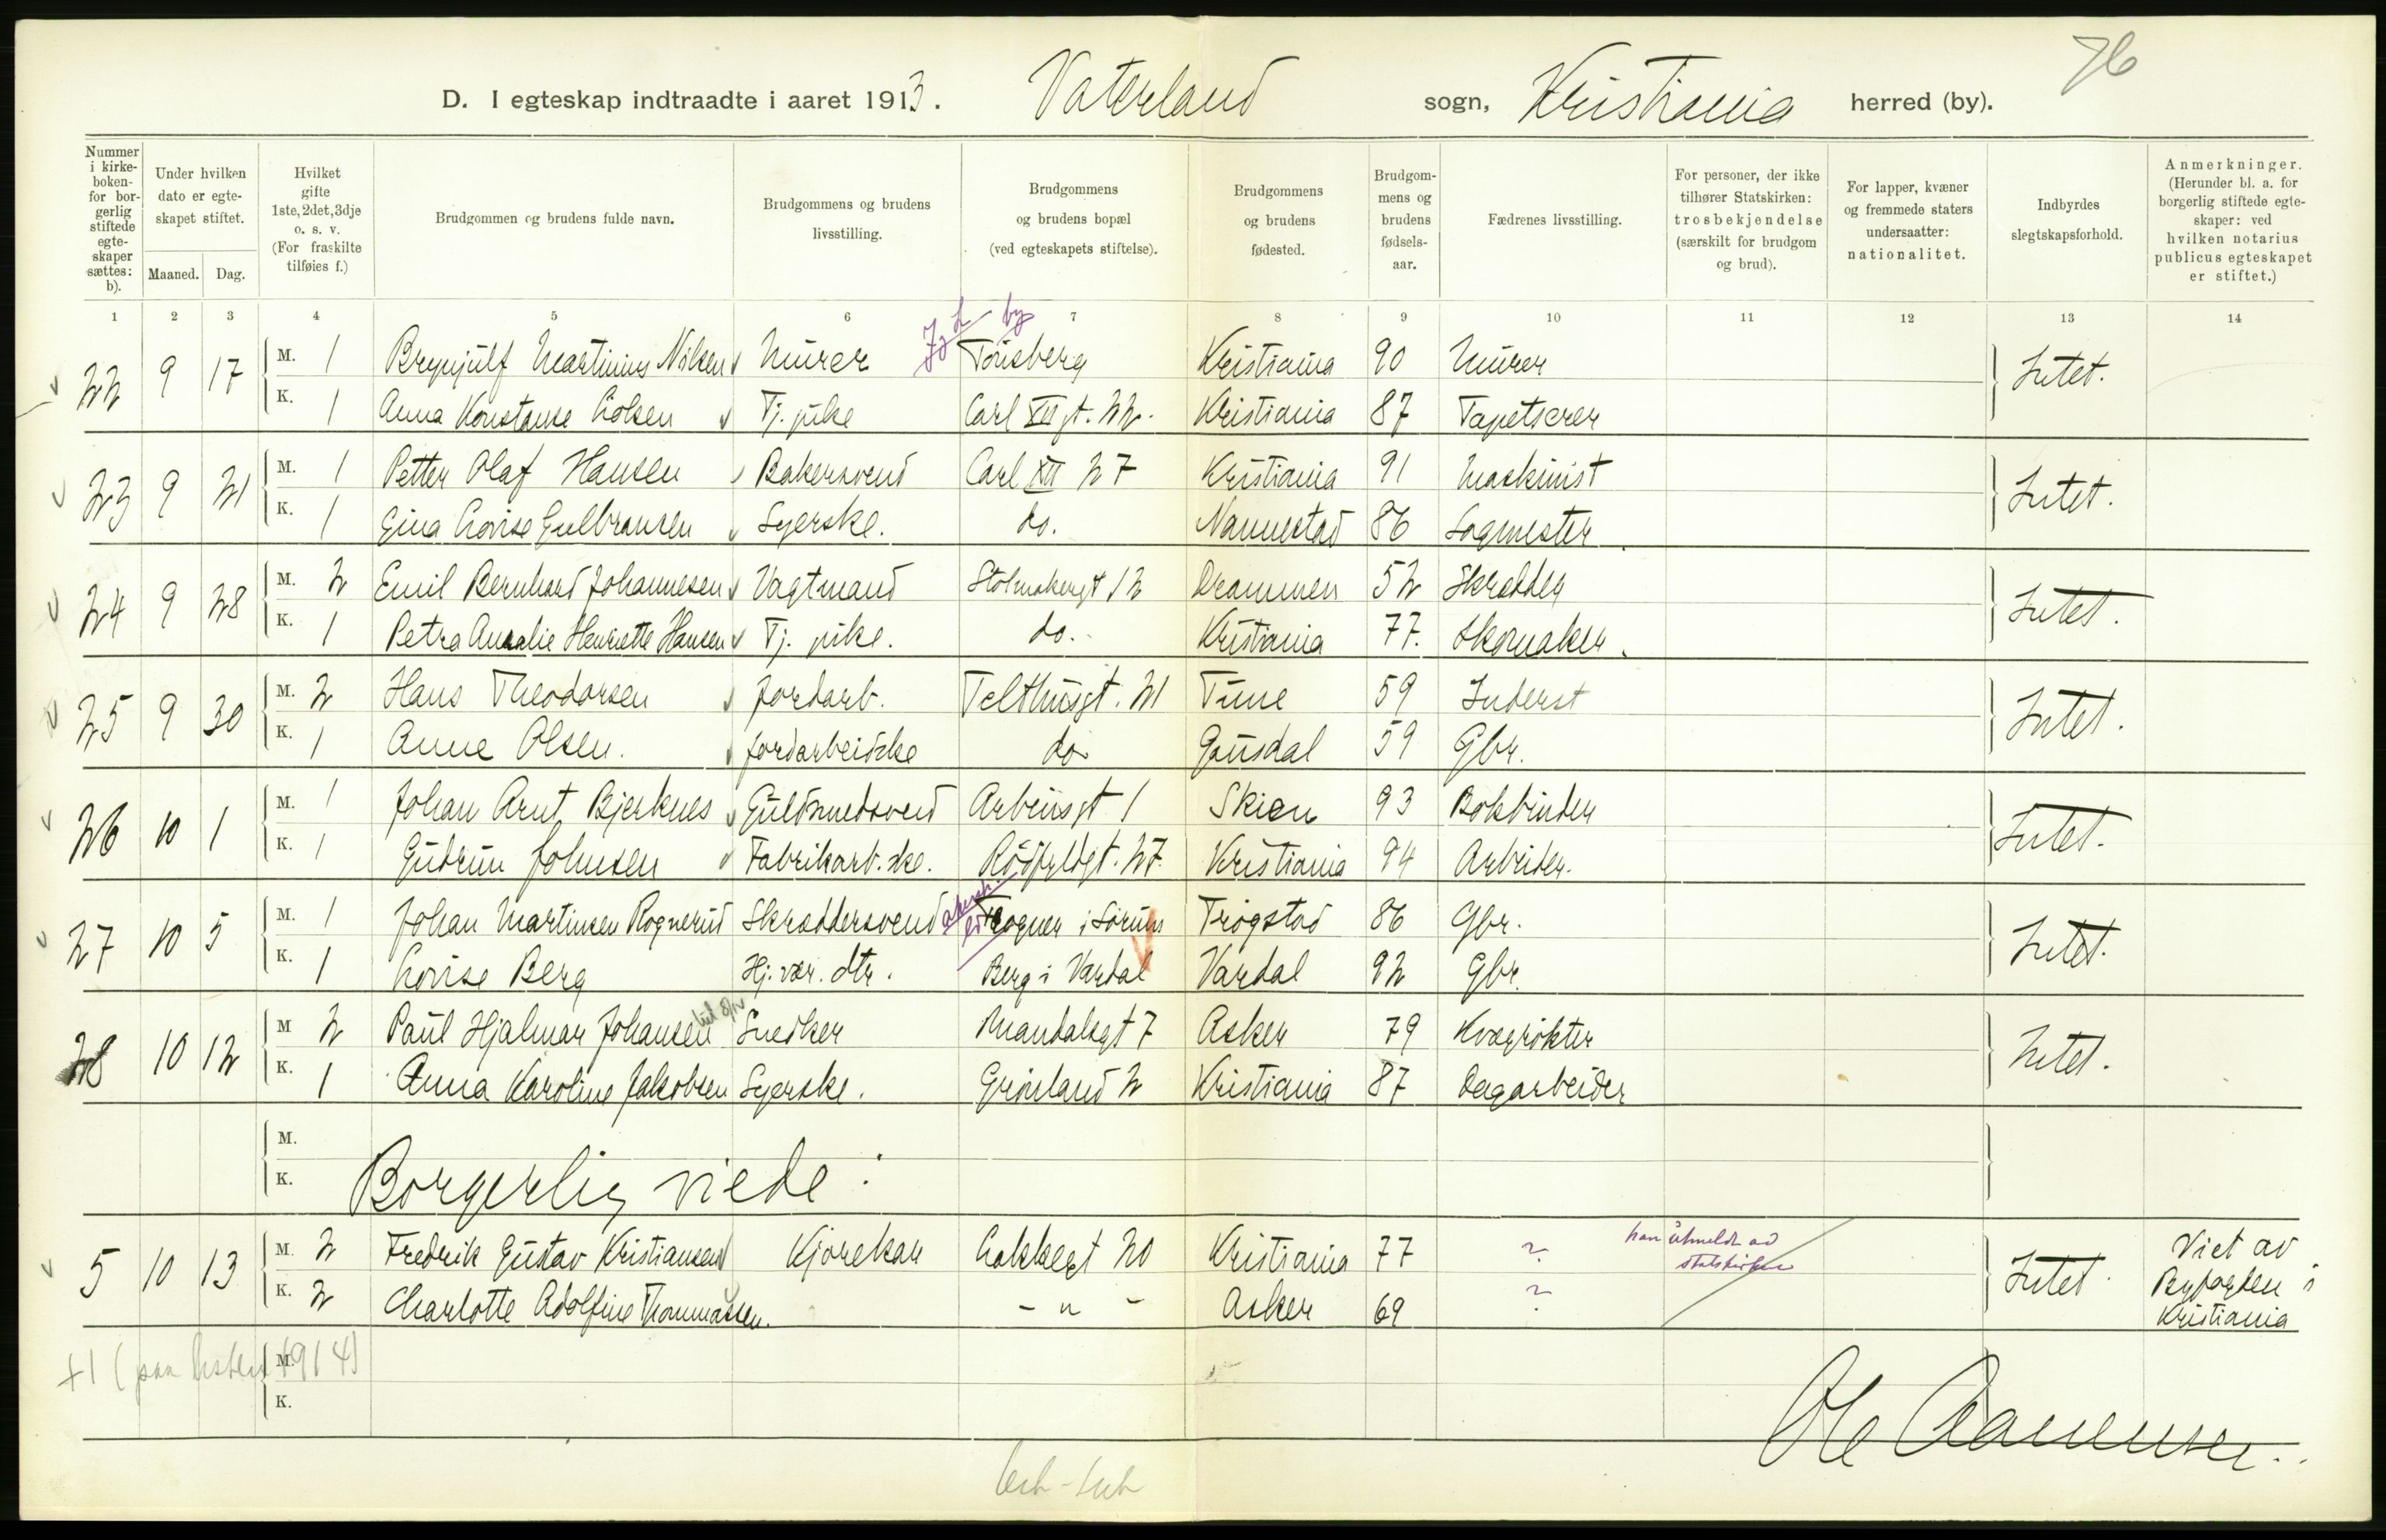 76
D. I egteskap indtraadte i aaret 1913. Vaterland sogn, Kristiania herred (by).
Nummer i kirke-boken- for bor-gerlig stiftede egte-skaper sættes: b).
Under hvilken dato er egte-skapet stiftet.
Maaned. Dag.
Hvilket gifte 1ste, 2det, 3dje o. s. v. (For fraskilte tilføies f.)
Brudgommen og brudens fulde navn.
Brudgommens og brudens livsstilling.
Brudgommens og brudens bopæl (ved egteskapets stiftelse).
Brudgommens og brudens fødested.
Brudgom-mens og brudens fødsels-aar.
Fædrenes livsstilling.
For personer, der ikke tilhører Statskirken: trosbekjendelse (særskilt for brudgom og brud).
For lapper, kvæner og fremmede staters undersaatter: nationalitet.
Indbyrdes slegtskapsforhold.
Anmerkninger. (Herunder bl. a. for borgerlig stiftede egte-skaper: ved hvilken notarius publicus egteskapet er stiftet.)
1 2 3 4 5 6 7 8 9 10 11 12 13 14
22 9 17 M. 1 Brynjulf Martinius Nilsen Murer Tønsberg Kristiania 90 Murer Intet.
K. 1 Anna Konstanse Colsen Tj. pike Carl XII gt. 22. Kristiania 87 Tapetserer
23 9 21 M. 1 Petter Olaf Hansen Bakersvend Carl XII 27 Kristiania 91 Maskinist Intet.
K. 1 Gina Lovise Gulbransen Syerske. do. Nannestad 86 Sagmester.
24 9 28 M. 2 Emil Bernhard Johannesen Vagtmand Stolmakergt 12 Drammen 52 Skrædder Intet.
K. 1 Petra Amalie Henriette Hansen Tj. pike. do. Kristiania 77. Skomaker.
25 9 30 M. 2 Hans Theodorsen Jordarb. Telthusgt. 21 Tune 59 Inderst Intet.
K. 1 Anne Olsen. Jordarbeidske do Gausdal 59 Gbr.
26 10 1 M. 1 Johan Arnt Bjerknes Guldsmedsvend Arbeiersgt 1 Skien 93 Bokbinder Intet.
K. 1 Gudrun Johnsen Fabrikarb.ske. Rødfyldgt. 27. Kristiania 94 Arbeider.
27 10 5 M. 1 Johan Martinsen Rognerud Skræddersvend i Sørum Trøgstad 86 Gbr. Intet.
K. 1 Lovise Berg Hj. vær. dtr. Berg i Vardal Vardal 92 Gbr.
28 10 12 M 2 Paul Hjalmar Johansen Snedker Mandalsgt 7 Asker 79 Kvægrøkter Intet.
K. 1 Anna Karoline Jakobsen Syerske. Grønland 2 Kristiania 87 Dagarbeider
M.
K. Borgerlig viede:
5 10 13 M. 2 Fredrik Gustav Kristiansen Kjørekar Lakkegt 20 Kristiania 77 ? han utmeldt av statskirken Intet. Viet av Byfogden i Kristiania
K. 2 Charlotte Adolfine Thommassen. - " - Asker 69 ?
+1 (paa listen 1914) M.
K.
Ole Aamunsen.